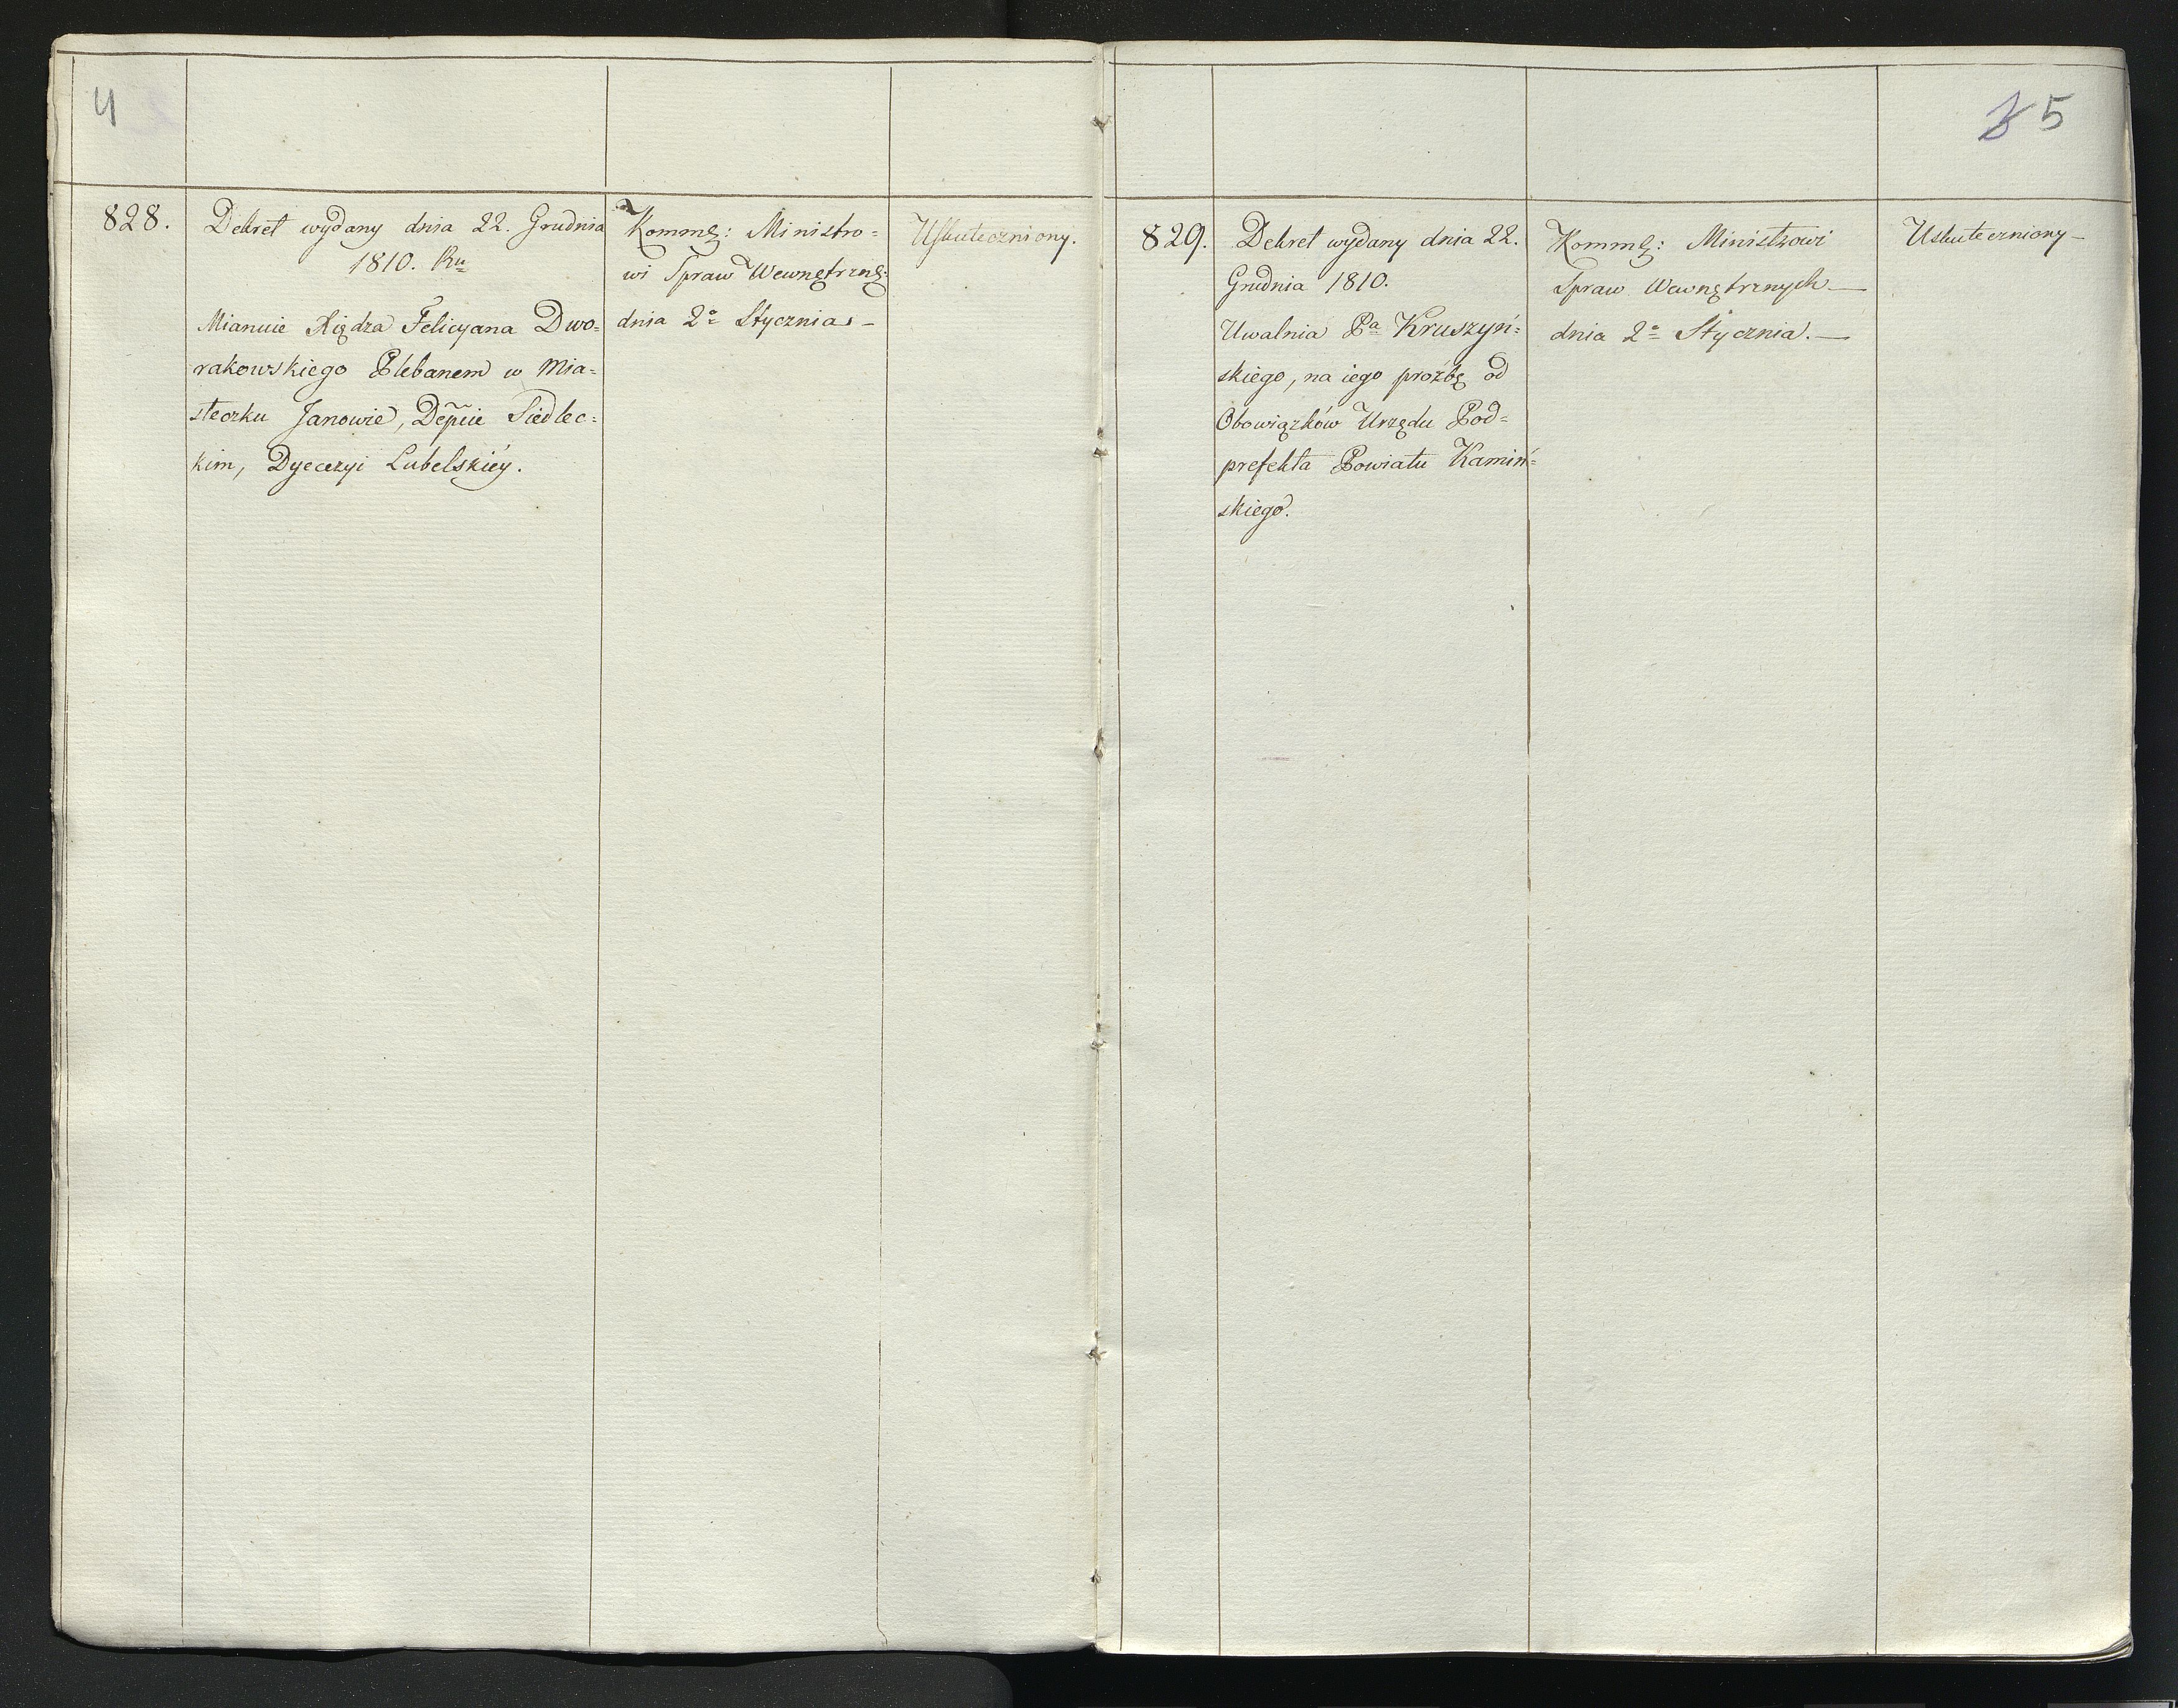 4
828.
Dekret wydany dnia 22. Grudnia
1810. Ru
Mianuie Xiędza Felicyana Dwo=
rakowskiego Plebanem w Mia=
steczku Janowie, Depcie Siedlec=
kim, Dyecezyi Lubelskiéy.
Ministro=
wi Spraw Wewnętrzn:
dnia 2o Stycznia -
Uskuteczniony.
5
829.
Dekret wydany dnia 22.
Grudnia 1810.
Uwalnia Pa Kruszyń=
skiego, na iego prożbę od
Obowiązków Urzędu Pod=
prefekta Powiatu Kamiń=
skiego.
Ministrowi
Spraw Wewnętrznych —
dnia 2o Stycznia. —
Uskuteczniony —